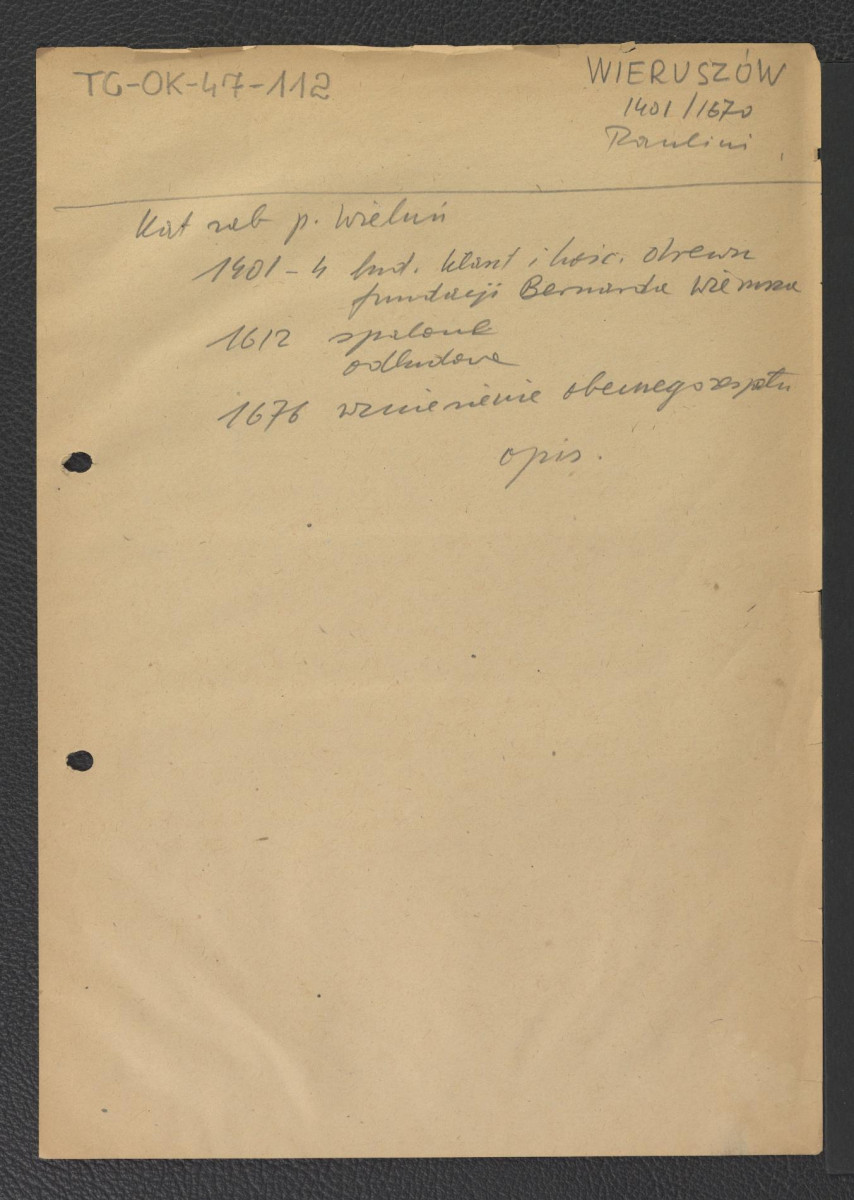 TG-OK-47-112
WIERUSZÓW
1401/1670
Paulini
Kat zab p. Wieluń
1401 - 4 bud. klaszt i kośc. drewn
fundacji Bernarda Wierusza
1612 spalone
odbudowa
1676 wzniesienie obecnego zespołu
opis.